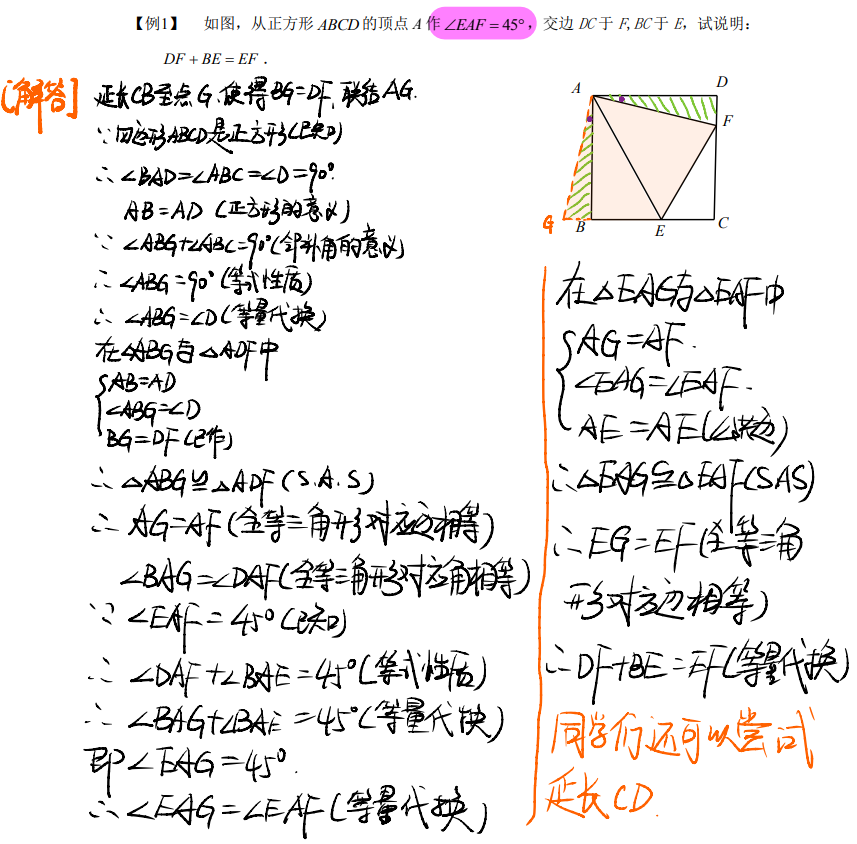 【例1】 如图，从正方形 ABCD 的顶点 A 作 ∠EAF = 45°，交边 DC 于 F, BC 于 E，试说明：
DF + BE = EF．
[解答]
延长CB至点G,使得BG=DF,联结AG.
∵四边形ABCD是正方形(已知)
∴∠BAD=∠ABC=∠D=90°
AB=AD (正方形的意义)
∵ ∠ABG+∠ABC=90°(邻补角的意义)
∴ ∠ABG=90°(等式性质)
∴ ∠ABG=∠D(等量代换)
在△ABG与△ADF中
AB=AD
∠ABG=∠D
BG=DF(已作)
∴ △ABG≌△ADF(S.A.S)
∴ AG=AF(全等三角形对应边相等)
∠BAG=∠DAF(全等三角形对应角相等)
∵ ∠EAF=45°(已知)
∴ ∠DAF+∠BAE=45°(等式性质)
∴ ∠BAG+∠BAE=45°(等量代换)
即∠EAG=45°.
∴ ∠EAG=∠EAF(等量代换)
A
D
F
G
B
E
C
在△EAG与△EAF中
AG=AF.
∠EAG=∠EAF.
AE=AE(公共边)
∴△EAG≌△EAF(SAS)
∴EG=EF(全等三角
形对应边相等)
∴DF+BE=EF(等量代换)
同学们还可以尝试
延长CD.